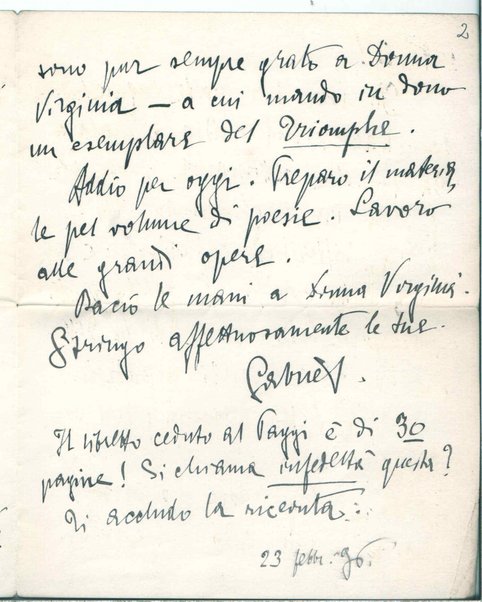 2
sono pur sempre grato a Donna
Virginia — a cui mando in dono
un esemplare del Triomphe.
Addio per oggi. Preparo il materia
le pel volume di poesie. Lavoro
alle grandi opere.
Bacio le mani a Donna Virginia.
Stringo affettuosamente le tue.
Gabriel.
Il libretto ceduto al Paggi è di 30
pagine! Si chiama infedeltà questa?
Ti accludo la ricevuta.
23 febbr. 96.